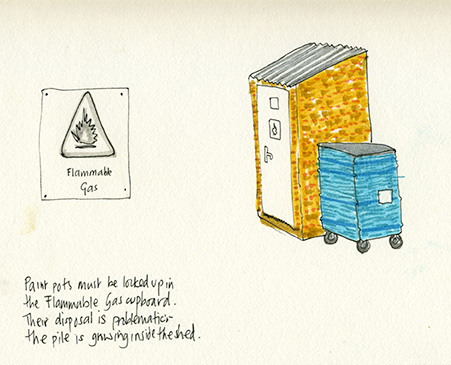 Flammable
Gas
Paint pots must be locked up in
the Flammable Gas cupboard.
Their disposal is problematic -
the pile is growing inside the shed.